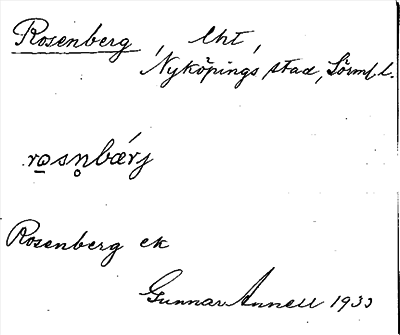 Rosenberg, lht,
Nyköpings stad, Sörml. l.
rⱺsn̥bǽrj
Rosenberg ek
Gunnar Annell 1933